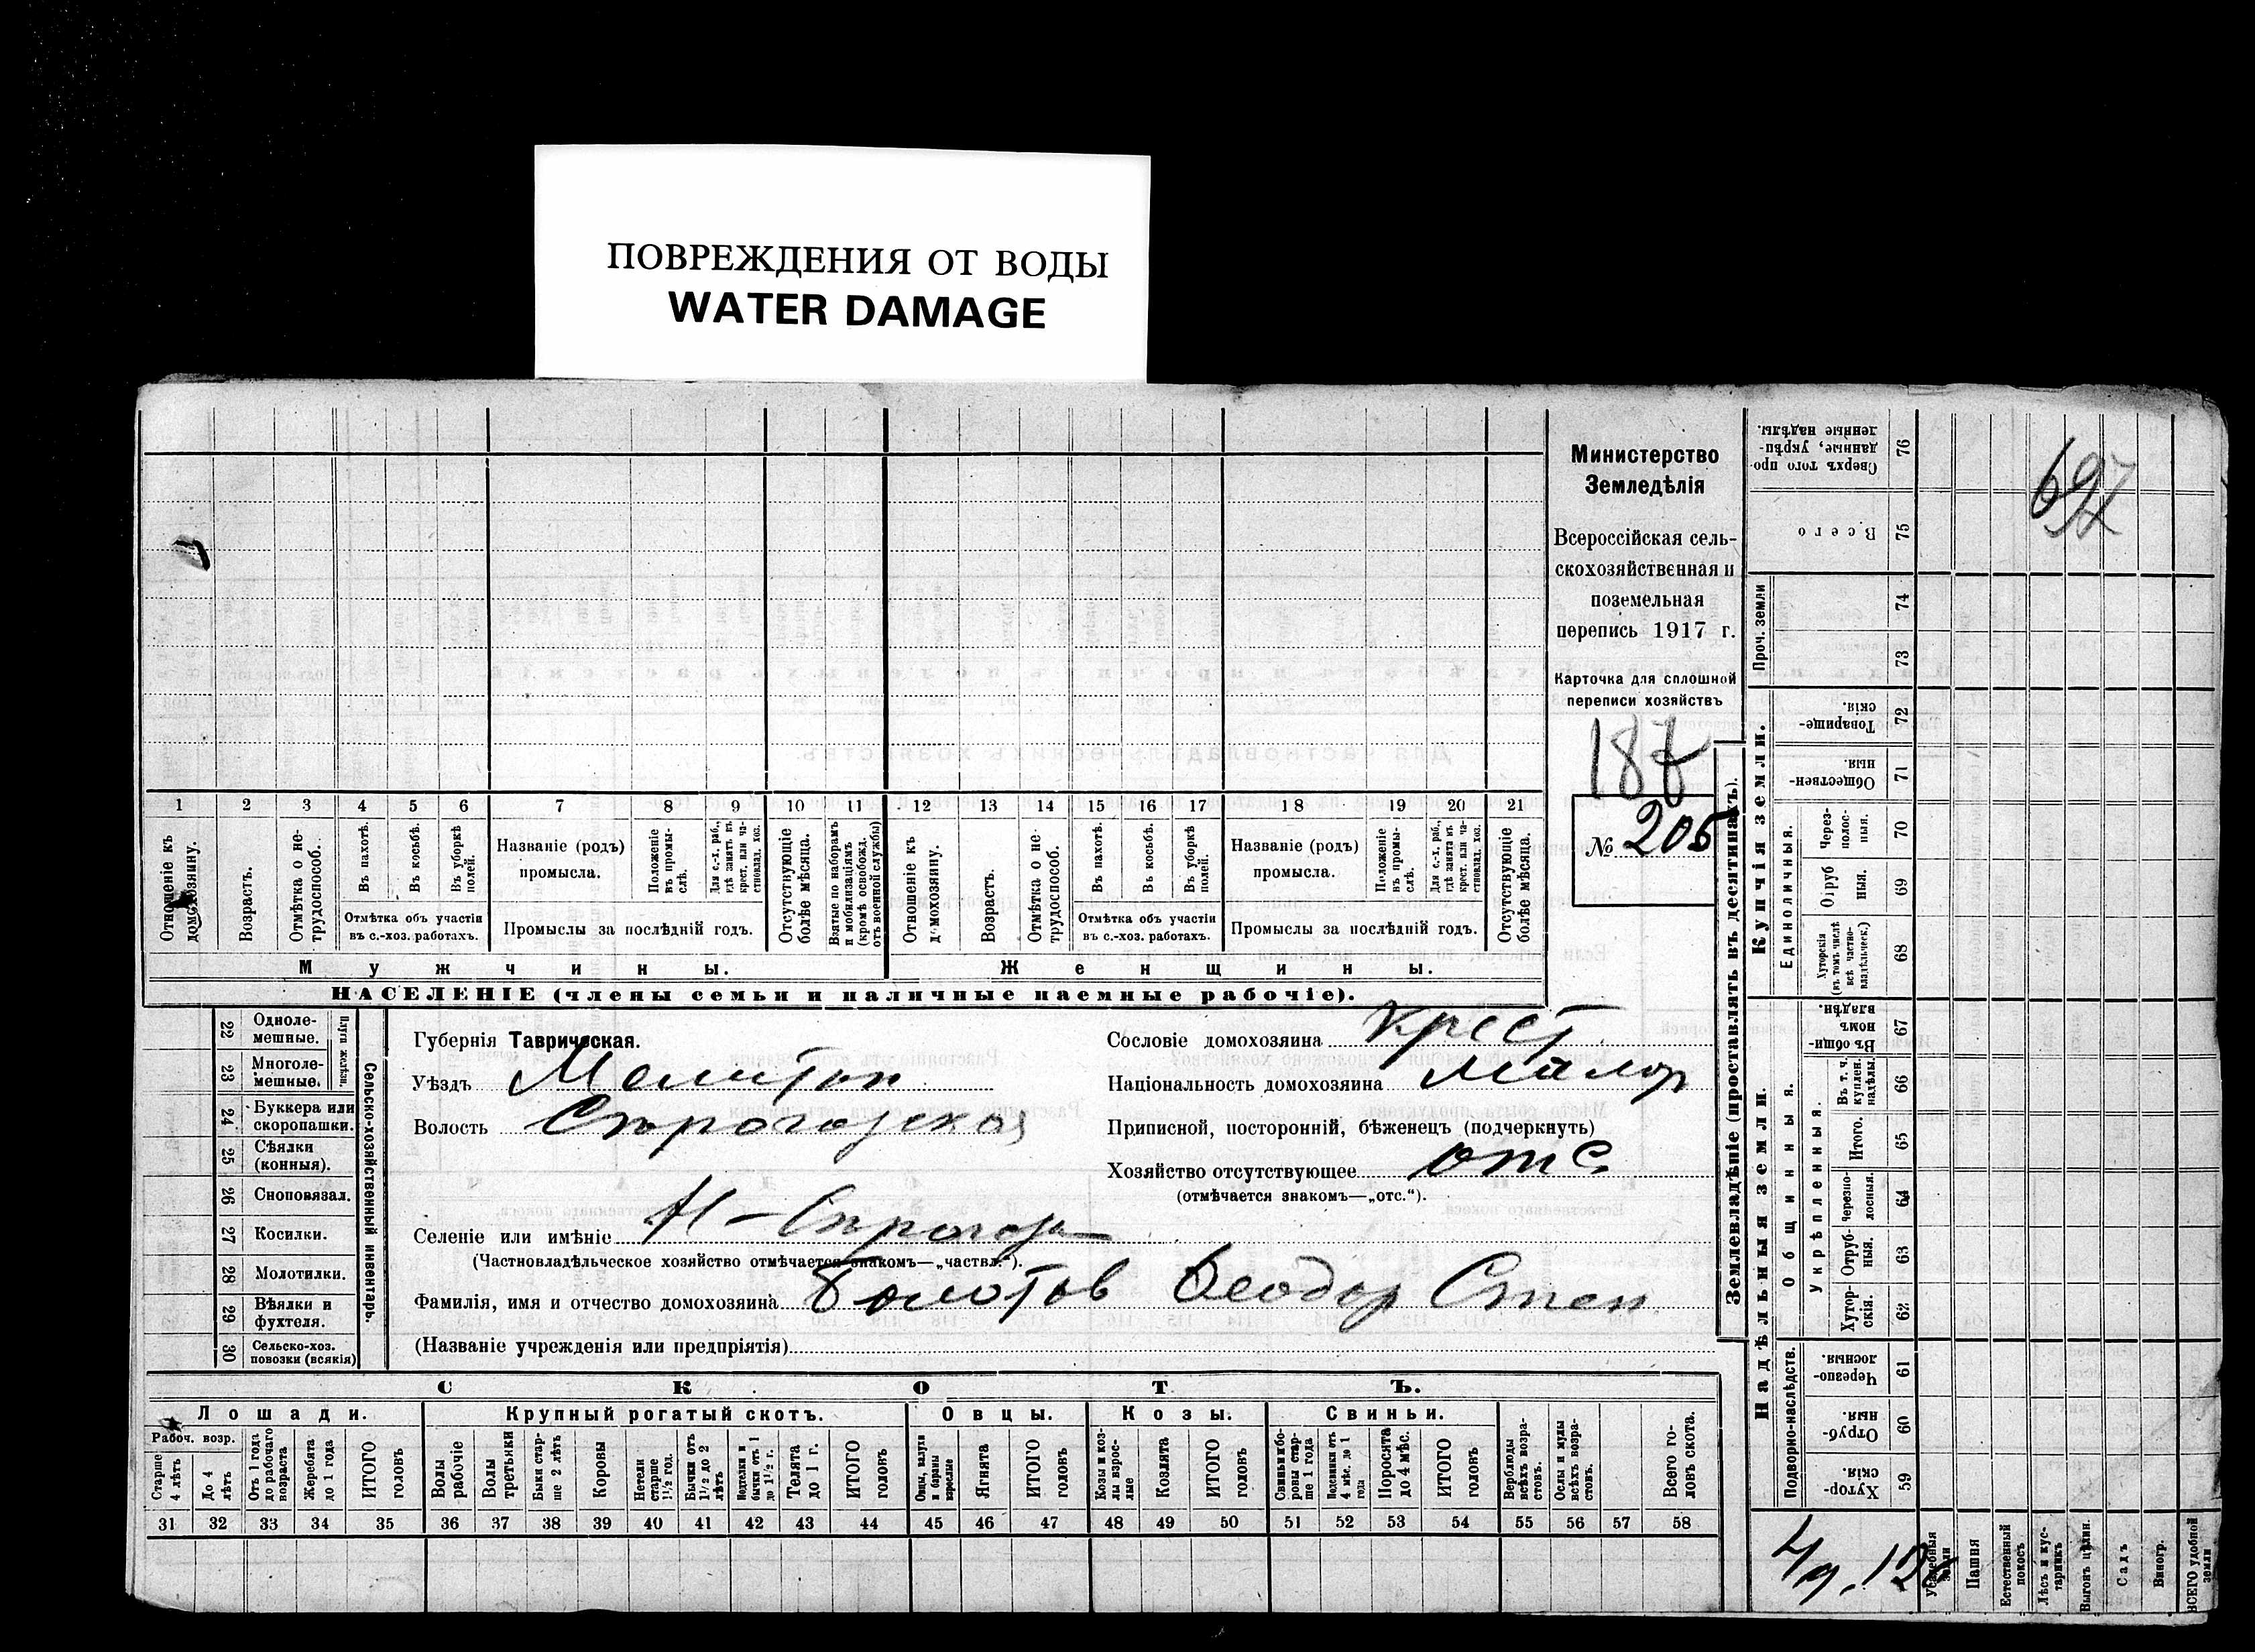 ПОВРЕЖДЕНИЯ ОТ ВОДЫ
WATER DAMAGE
Министерство
Земледѣлія
Всероссійская сель-
скохозяйственная и
поземельная
перепись 1917 г.
Карточка для сплошной
переписи хозяйствъ
187
№ 205
697
1 2 3 4 5 6 7 8 9 10 11 12 13 14 15 16 17 18 19 20 21
Отношеніе къ домохозяину.
Возрастъ.
Отмѣтка о не-трудоспособ.
Въ пахотѣ.
Въ косьбѣ.
Въ уборкѣ полей.
Отмѣтка объ участіи
въ с.-хоз. работахъ.
Названіе (родъ)
промысла.
Положеніе въ промы-слѣ.
Для с.-х. раб., гдѣ занятъ въ крест. или ча-стновлад. хоз.
Промыслы за послѣдній годъ.
Отсутствующіе болѣе мѣсяца.
Взятые по наборамъ и мобилизаціямъ (кромѣ освобожд. отъ военной службы)
Отношеніе къ домохозяину.
Возрастъ.
Отмѣтка о не-трудоспособ.
Въ пахотѣ.
Въ косьбѣ.
Въ уборкѣ полей.
Отмѣтка объ участіи
въ с.-хоз. работахъ.
Названіе (родъ)
промысла.
Положеніе въ промы-слѣ.
Для с.-х. раб., гдѣ занята въ крест. или ча-стновлад. хоз.
Промыслы за послѣдній годъ.
Отсутствующіе болѣе мѣсяца.
Мужчины.
Женщины.
НАСЕЛЕНІЕ (члены семьи и наличные наемные рабочіе).
22 Одноле-мешные.
23 Многоле-мешные.
Плуги желѣзн.
24 Буккера или скоропашки.
25 Сѣялки (конныя).
26 Сноповязал.
27 Косилки.
28 Молотилки.
29 Вѣялки и фухтеля.
30 Сельско-хоз. повозки (всякія)
Сельско-хозяйственный инвентарь.
Губернія Таврическая.
Уѣздъ Мелитоп
Волость
Селеніе или имѣніе
(Частновладѣльческое хозяйство отмѣчается знакомъ—„частвл.“).
Фамилія, имя и отчество домохозяина Болотов Ѳеодор Степ
(Названіе учрежденія или предпріятія)
Сословіе домохозяина крест
Національность домохозяина Малор
Приписной, посторонній, бѣженецъ (подчеркнуть)
Хозяйство отсутствующее отс.
(отмѣчается знакомъ—„отс.“).
СКОТЪ.
Лошади.
Рабоч. возр.
Старше 4 лѣтъ
До 4 лѣтъ
Отъ 1 года до рабочаго возраста
Жеребята до 1 года
ИТОГО головъ
Крупный рогатый скотъ.
Волы рабочіе
Волы третьяки
Быки стар-ше 2 лѣтъ
Коровы
Нетели старше 1½ год.
Бычки отъ 1½ до 2 лѣтъ
бычки отъ 1 до 1½ г.
Телята до 1 г.
ИТОГО головъ
Овцы.
Овцы, валухи и бараны взрослые
Ягнята
ИТОГО головъ
Козы.
Козы и коз-лы взрос-лые
Козлята
ИТОГО головъ
Свиньи.
Свиньи и бо-ровы стар-ше 1 года
Подсвинки отъ 4 мѣс. до 1 года
Поросята до 4 мѣс.
ИТОГО головъ
Верблюды всѣхъ возра-стовъ.
Ослы и мулы всѣхъ возра-стовъ.
Всего го-ловъ скота.
31 32 33 34 35 36 37 38 39 40 41 42 43 44 45 46 47 48 49 50 51 52 53 54 55 56 57 58
Землевладѣніе (проставлять въ десятинахъ).
Надѣльныя земли.
Подворно-наслѣдств.
Хутор-скія. 59
Отруб-ныя 60
Черезпо-лосныя. 61
Общинныя.
Укрѣпленныя.
Хутор-скія. 62
Отруб-ныя. 63
Черезпо-лосныя. 64
Итого. 65
Въ т. ч. куплен. надѣлы. 66
Въ общин-номъ владѣн. 67
Купчія земли.
Единоличныя.
Хуторскія (въ томъ числѣ всѣ частно-владѣльческ.) 68
Отруб ныя. 69
Через-полос-ныя. 70
Обществен-ныя 71
Товарище-скія. 72
Проч. земли
73 74
Всего 75
Сверхъ того про-данные, укрѣп-ленные надѣлы. 76
Усадебныя земли
Пашня
Естественный покосъ
Лѣсъ и кус-тарникъ
Выгонъ цѣлин.
Садъ
Виногр.
ВСЕГО удобной земли